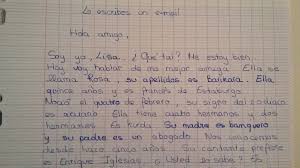 Lo escribes un e-mail
Hola amigo,
Soy yo, Lisa. ¿Qué tal? Me estoy bien.
Hoy voy hablar de ma mejor amiga. Ella se
llama Rosia, su apellidos es Bankara. Ella
quince años y es francés de Estaburgo
Nació el quatro de febrero, su signo del zodiaco
es acuario. Ella tiene cuatro hermanos y dos
hermanas. Es Kurda. Su madre es banquero
y su padre es un abogado. Nos conocemos
desde hace cinco años. Su cantante prefere
es Enrique Iglesias, ¿ Usted lo sabe? O